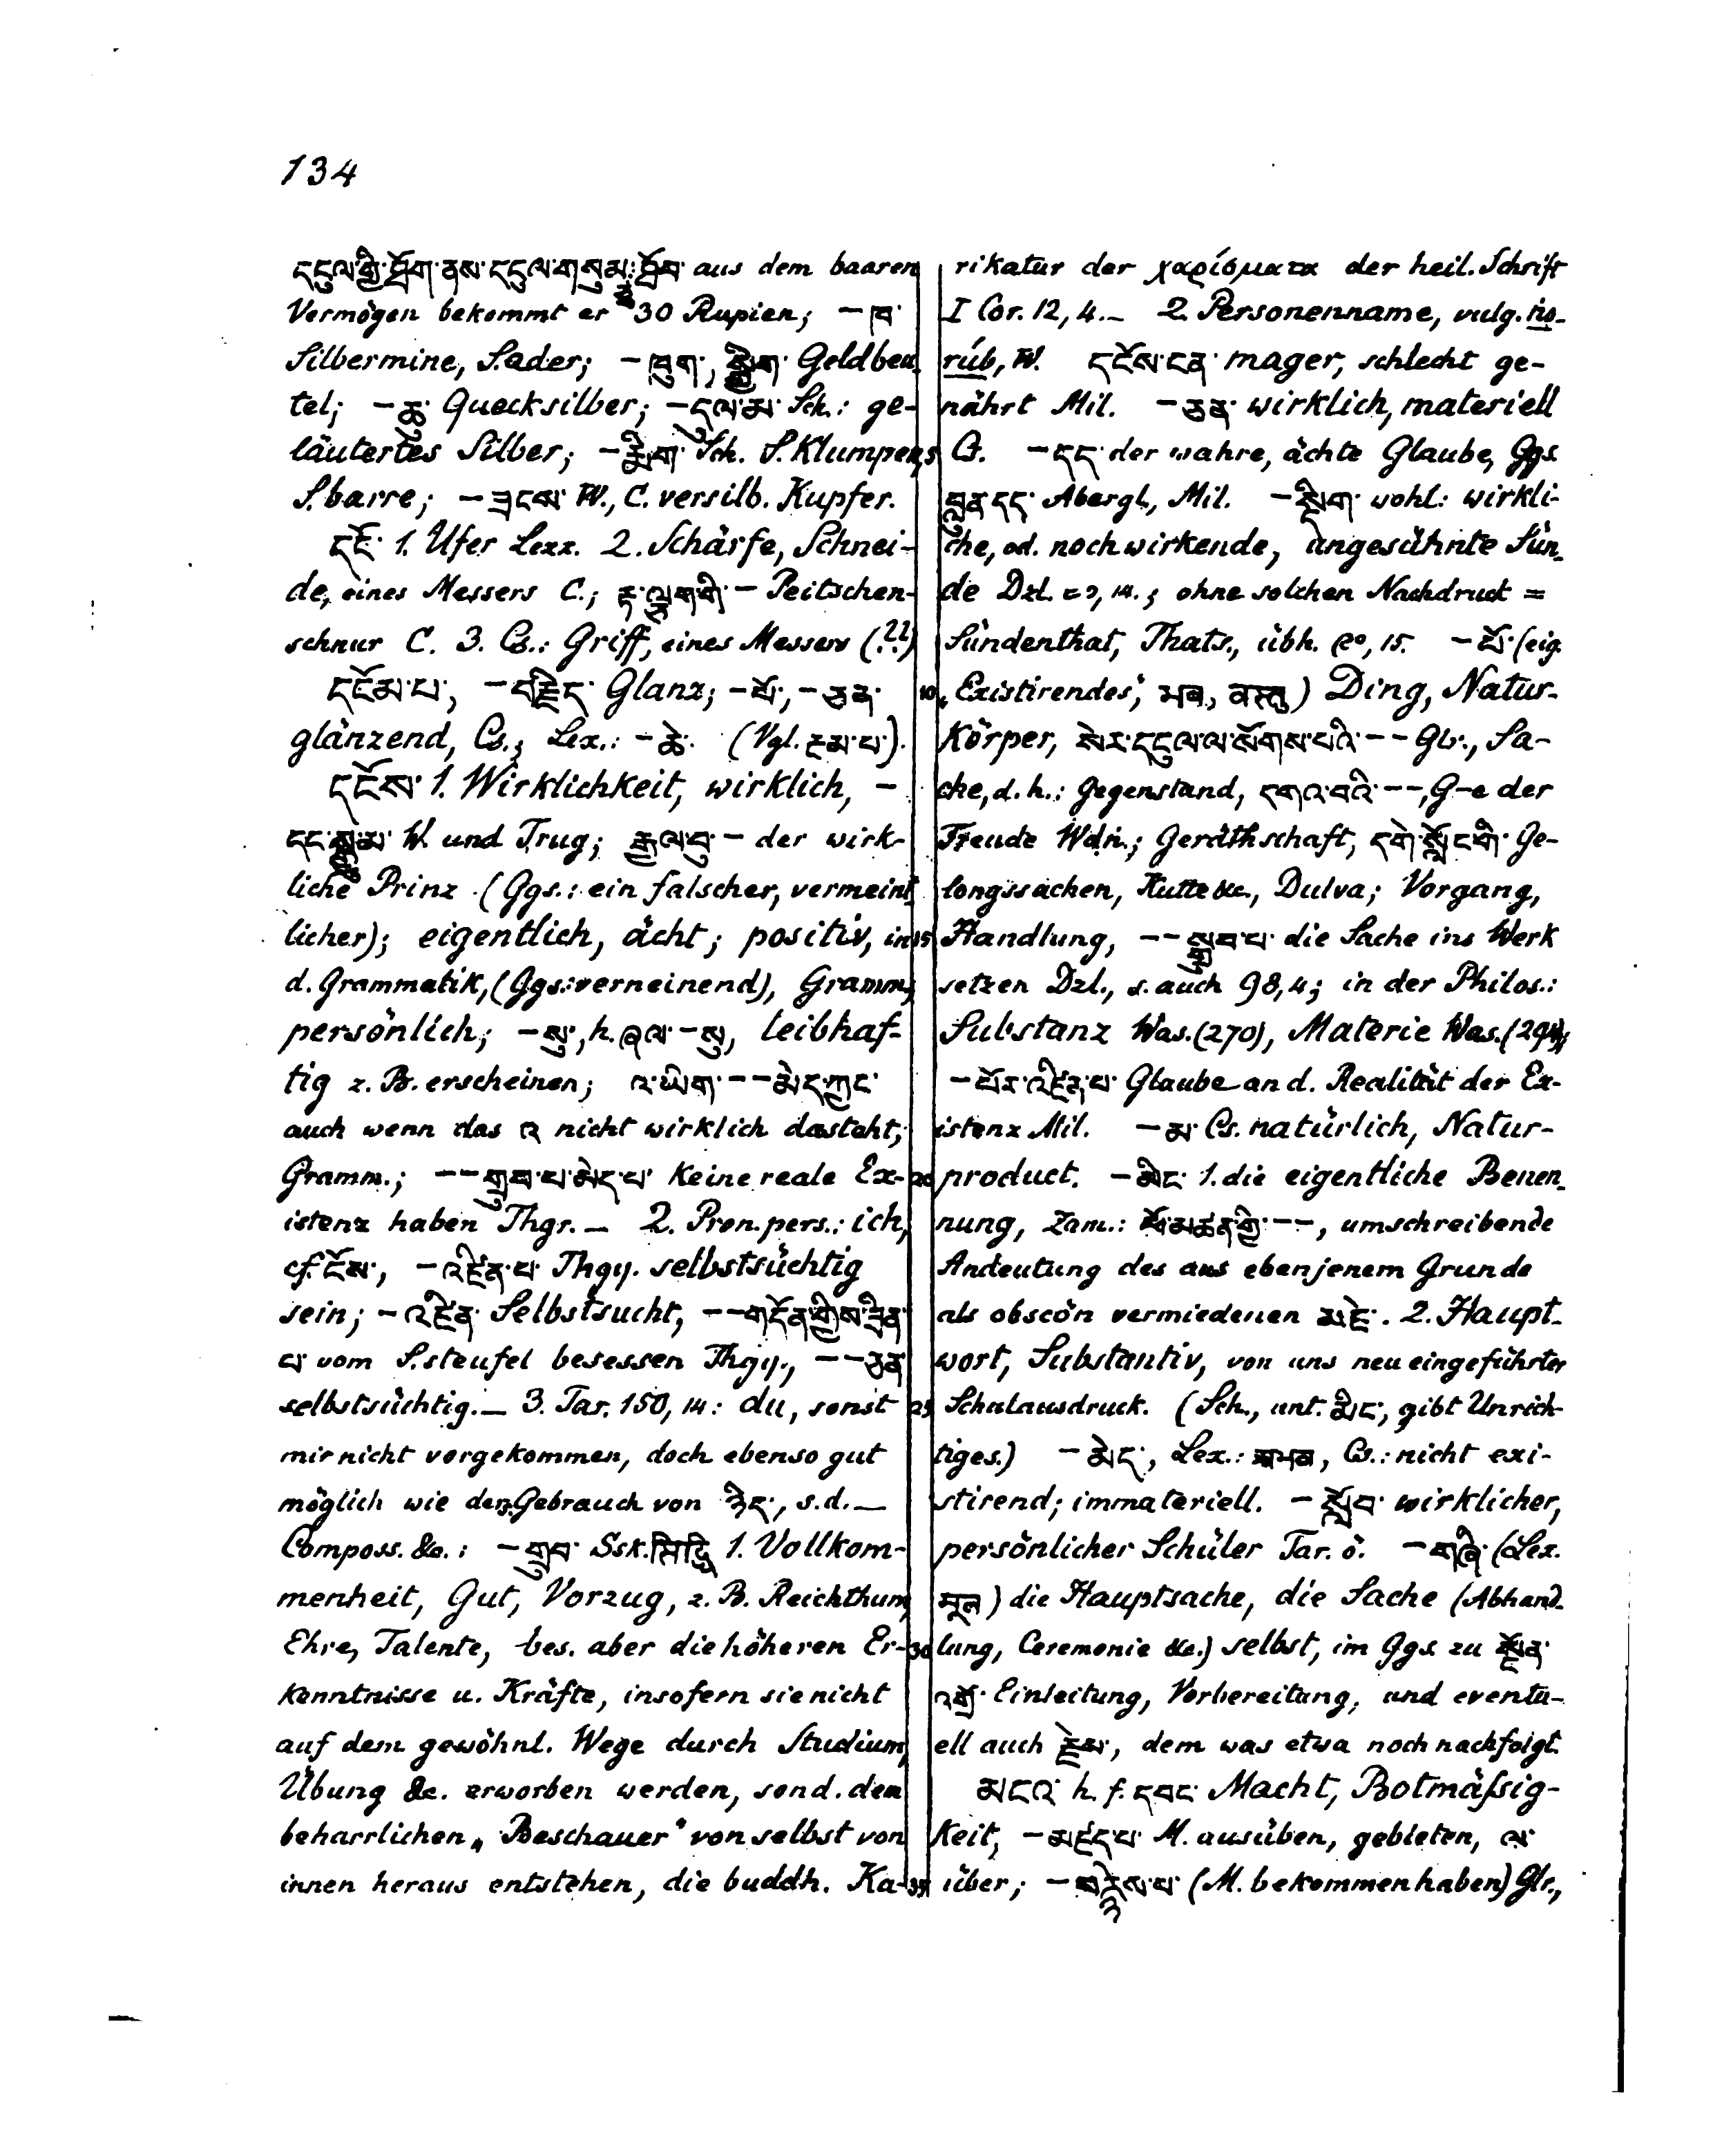 134
དངུལ་གྱི་ཐོག་ནས་དངུལ་གསུམ་ཅུ་ཐོབ་ aus dem baaren
Vermögen bekommt er 30 Rupien; — ཁ་
Silbermine, S.ader; — ཁུག་, སྒྱིག་ Geldbeu-
tel; — ཆུ་ Quecksilber; — དལ་མ་ Sch.: ge-
läutertes Silber; — རྨིག་ Sch. S.Klumpen,
S.barre; — ཟངས་ W., C. versilb. Kupfer.
དངོ་ 1. Ufer Lexx. 2. Schärfe, Schnei-
de, eines Messers C.; རྟ་ལྕག་གི་ — Peitschen-
schnur C. 3. Cs.: Griff, eines Messers (??)
དངོམ་པ་, — བརྗིད་ Glanz; — པོ་, — ཅན་
glänzend, Cs.; Lex.: — ཆེ་. (Vgl. རྔམ་པ་).
དངོས་ 1. Wirklichkeit, wirklich, —
དང་སྒྱུ་མ་ W. und Trug; རྒྱལ་བུ་ — der wirk-
liche Prinz (Ggs.: ein falscher, vermeint-
licher); eigentlich, ächt; positiv, in
d. Grammatik, (Ggs.: verneinend), Gramm;
persönlich; — སུ་, h. ཞལ་ — སུ, leibhaf-
tig z. B. erscheinen; འ་ཡིག་ — — མེད་ཀྱང་
auch wenn das འ nicht wirklich dasteht;
Gramm.; — — གྲུབ་པ་མེད་པ་ keine reale Ex-
istenz haben Thgr. — 2. Pron. pers.: ich,
cf. ངོས་, — འཛིན་པ་ Thgy. selbstsüchtig
sein; — འཛིན་ Selbstsucht, — — གདོན་གྱིས་ཟིན་
པ་ vom S.steufel besessen Thgy., — — ཅན་
selbstsüchtig. — 3. Tar. 150, 14: du, sonst
mir nicht vorgekommen, doch ebenso gut
möglich wie der Gebrauch von ཉིད་, s.d. —
Composs. &c.: — གྲུབ་ Ssk. सिद्धि 1. Vollkom-
menheit, Gut, Vorzug, z. B. Reichthum,
Ehre, Talente, bes. aber die höheren Er-
kenntnisse u. Kräfte, insofern sie nicht
auf dem gewöhnl. Wege durch Studium,
Übung &c. erworben werden, sond. dem
beharrlichen „Beschauer" von selbst von
innen heraus entstehen, die buddh. Ka-
rikatur der χαρίσματα der heil. Schrift
I Cor. 12, 4. — 2. Personenname, vulg. ṅo-
rúb, W. དངོས་ངན་ mager, schlecht ge-
nährt Mil. — ཅན་ wirklich, materiell
5 Cs. — དད་ der wahre, ächte Glaube, Ggs.
བླུན་དད་ Abergl., Mil. — སྡིག་ wohl: wirkli-
che, od. noch wirkende, ungesühnte Sün-
de Dzl. ༢༡, 14.; ohne solchen Nachdruck =
Sündenthat, Thats., übh. ༩༠, 15. — པོ་ (eig.
10 „Existirendes", भाव, वस्तु) Ding, Natur-
körper, སེར་དངུལ་ལ་སོགས་པའི་ — — Glr., Sa-
che, d. h.: Gegenstand, དགའ་བའི་ — —, G–e der
Freude Wdn.; Geräthschaft, དགེ་སློང་གི་ Ge-
longssachen, Kutte &c., Dulva; Vorgang,
15 Handlung, — — སྒྲུབ་པ་ die Sache ins Werk
setzen Dzl., s. auch ༡༨, 4; in der Philos.:
Substanz Was. (270), Materie Was. (294);
— པོར་འཛིན་པ་ Glaube an d. Realität der Ex-
istenz Mil. — མ་ Cs. natürlich, Natur-
20 product. — མིང་ 1. die eigentliche Benen-
nung, Zam.: ཕོ་མཚན་གྱི་ — —, umschreibende
Andeutung des aus ebenjenem Grunde
als obscön vermiedenen མཇེ་. 2. Haupt-
wort, Substantiv, von uns neu eingeführter
25 Schulausdruck. (Sch., unt. མིང་, gibt Unrich-
tiges.) — མེད་, Lex.: अभाव, Cs.: nicht exi-
stirend; immateriell. — སློབ་ wirklicher,
persönlicher Schüler Tar. ö. — གཞི་ (Lex.
मूल) die Hauptsache, die Sache (Abhand-
30 lung, Ceremonie &c.) selbst, im Ggs. zu སྔོན་
འགྲོ་ Einleitung, Vorbereitung, und eventu-
ell auch རྗེས་, dem was etwa noch nachfolgt.
མངའ་ h. f. དབང་ Macht, Botmäßig-
keit, — མཛད་པ་ M. ausüben, gebieten, ལ་
35 über; — བརྙེས་པ་ (M. bekommen haben) Glr.,